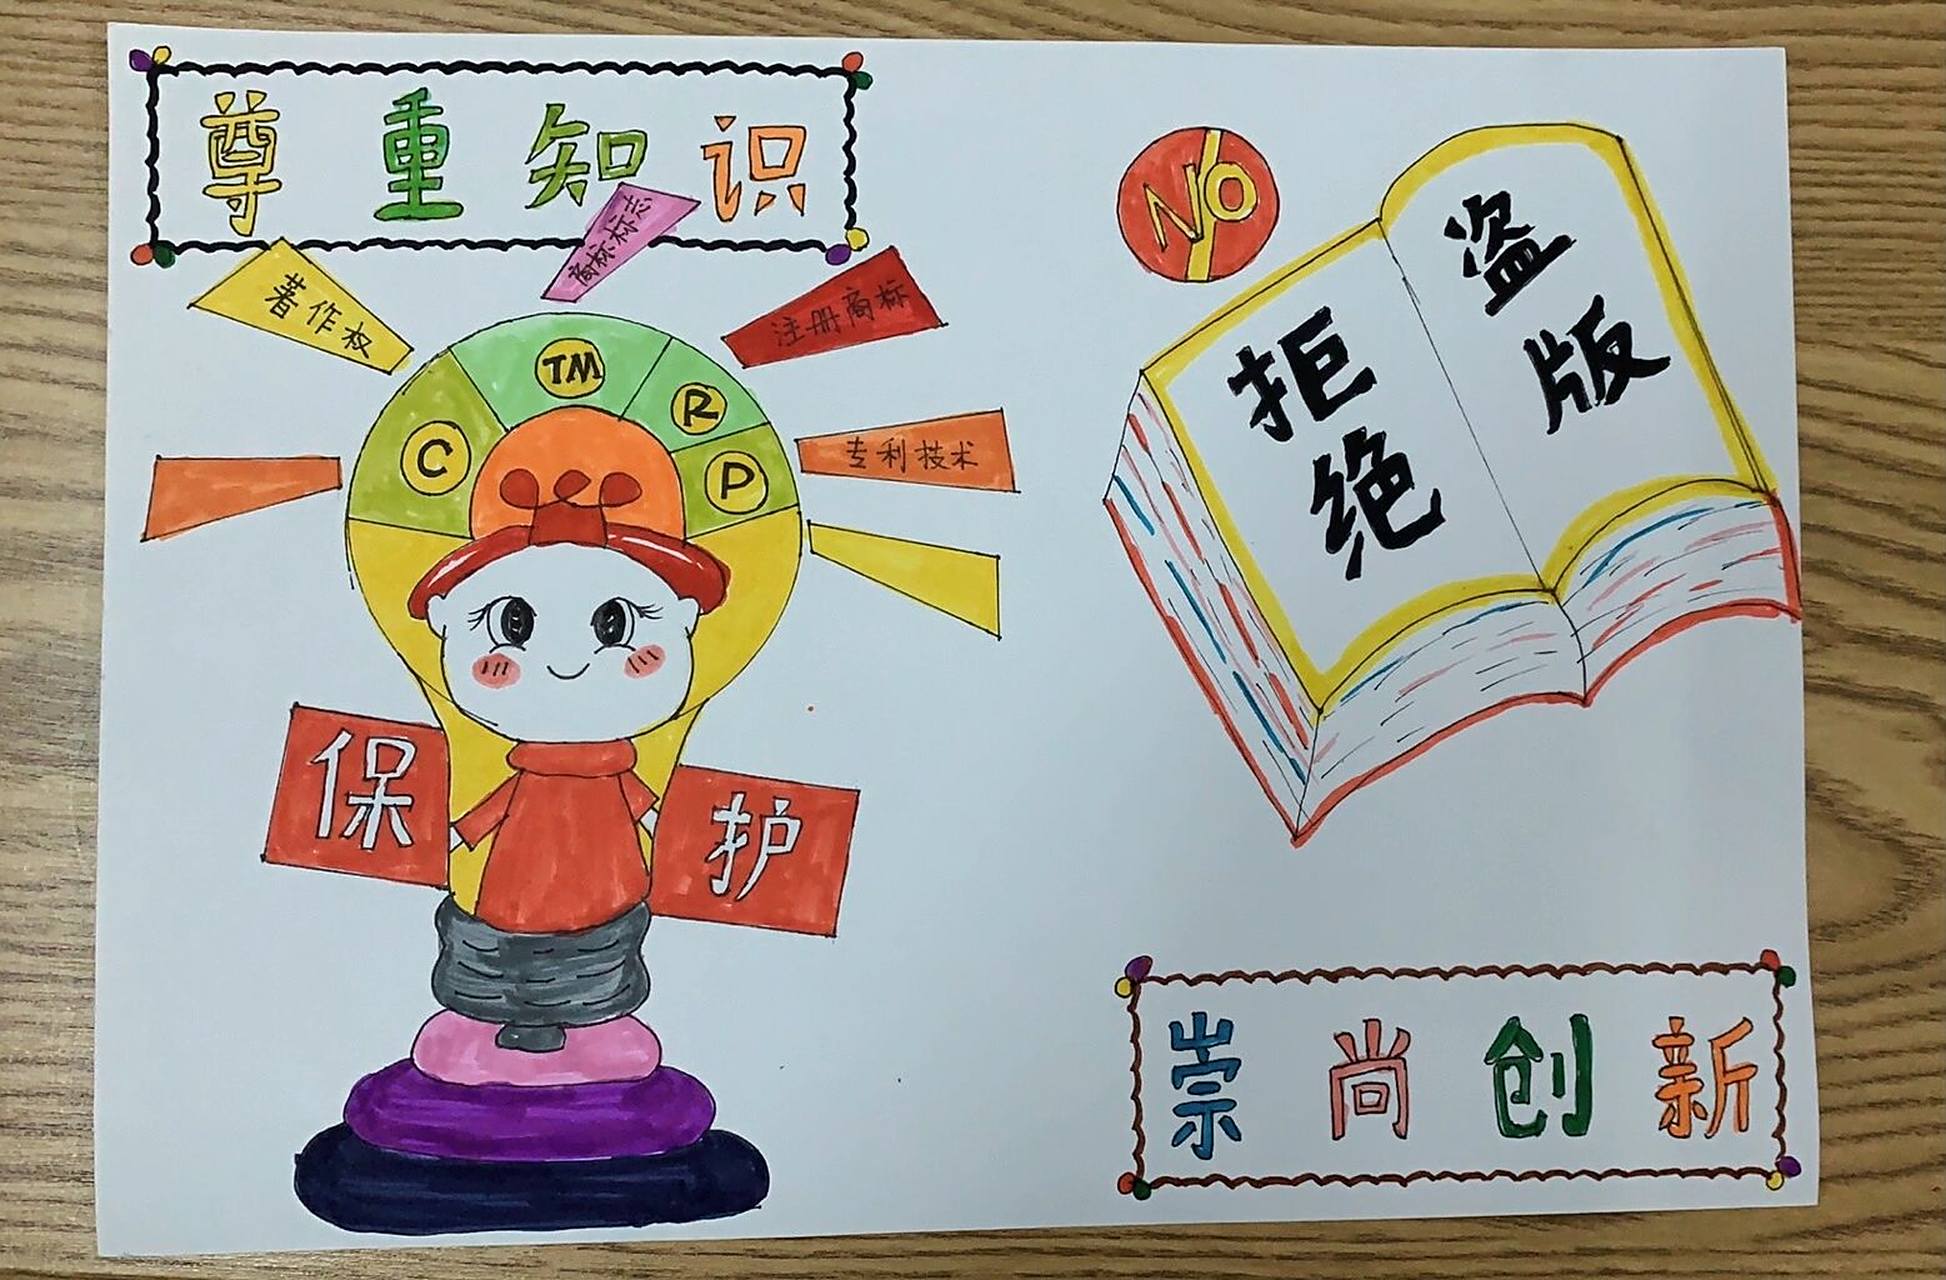 尊重知识
著作权
商标
注册商标
专利技术
TM
C
R
P
保护
NO
拒绝
盗版
崇尚创新